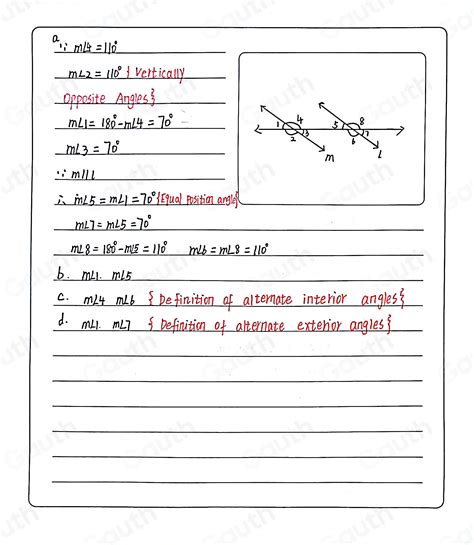 a
∵ m∠4 = 110°
m∠2 = 110° { Vertically
Opposite Angles}
m∠1 = 180° - m∠4 = 70°
m∠3 = 70°
∵ m∥l
∴ m∠5 = m∠1 = 70° {Equal Position angle}
m∠7 = m∠5 = 70°
m∠8 = 180° - m∠5 = 110° m∠6 = m∠8 = 110°
b. m∠1. m∠5
c. m∠4 m∠6 { Definition of alternate interior angles}
d. m∠1. m∠7 { Definition of alternate exterior angles}
1 4 2 3 m
5 8 6 7 l
Gauth